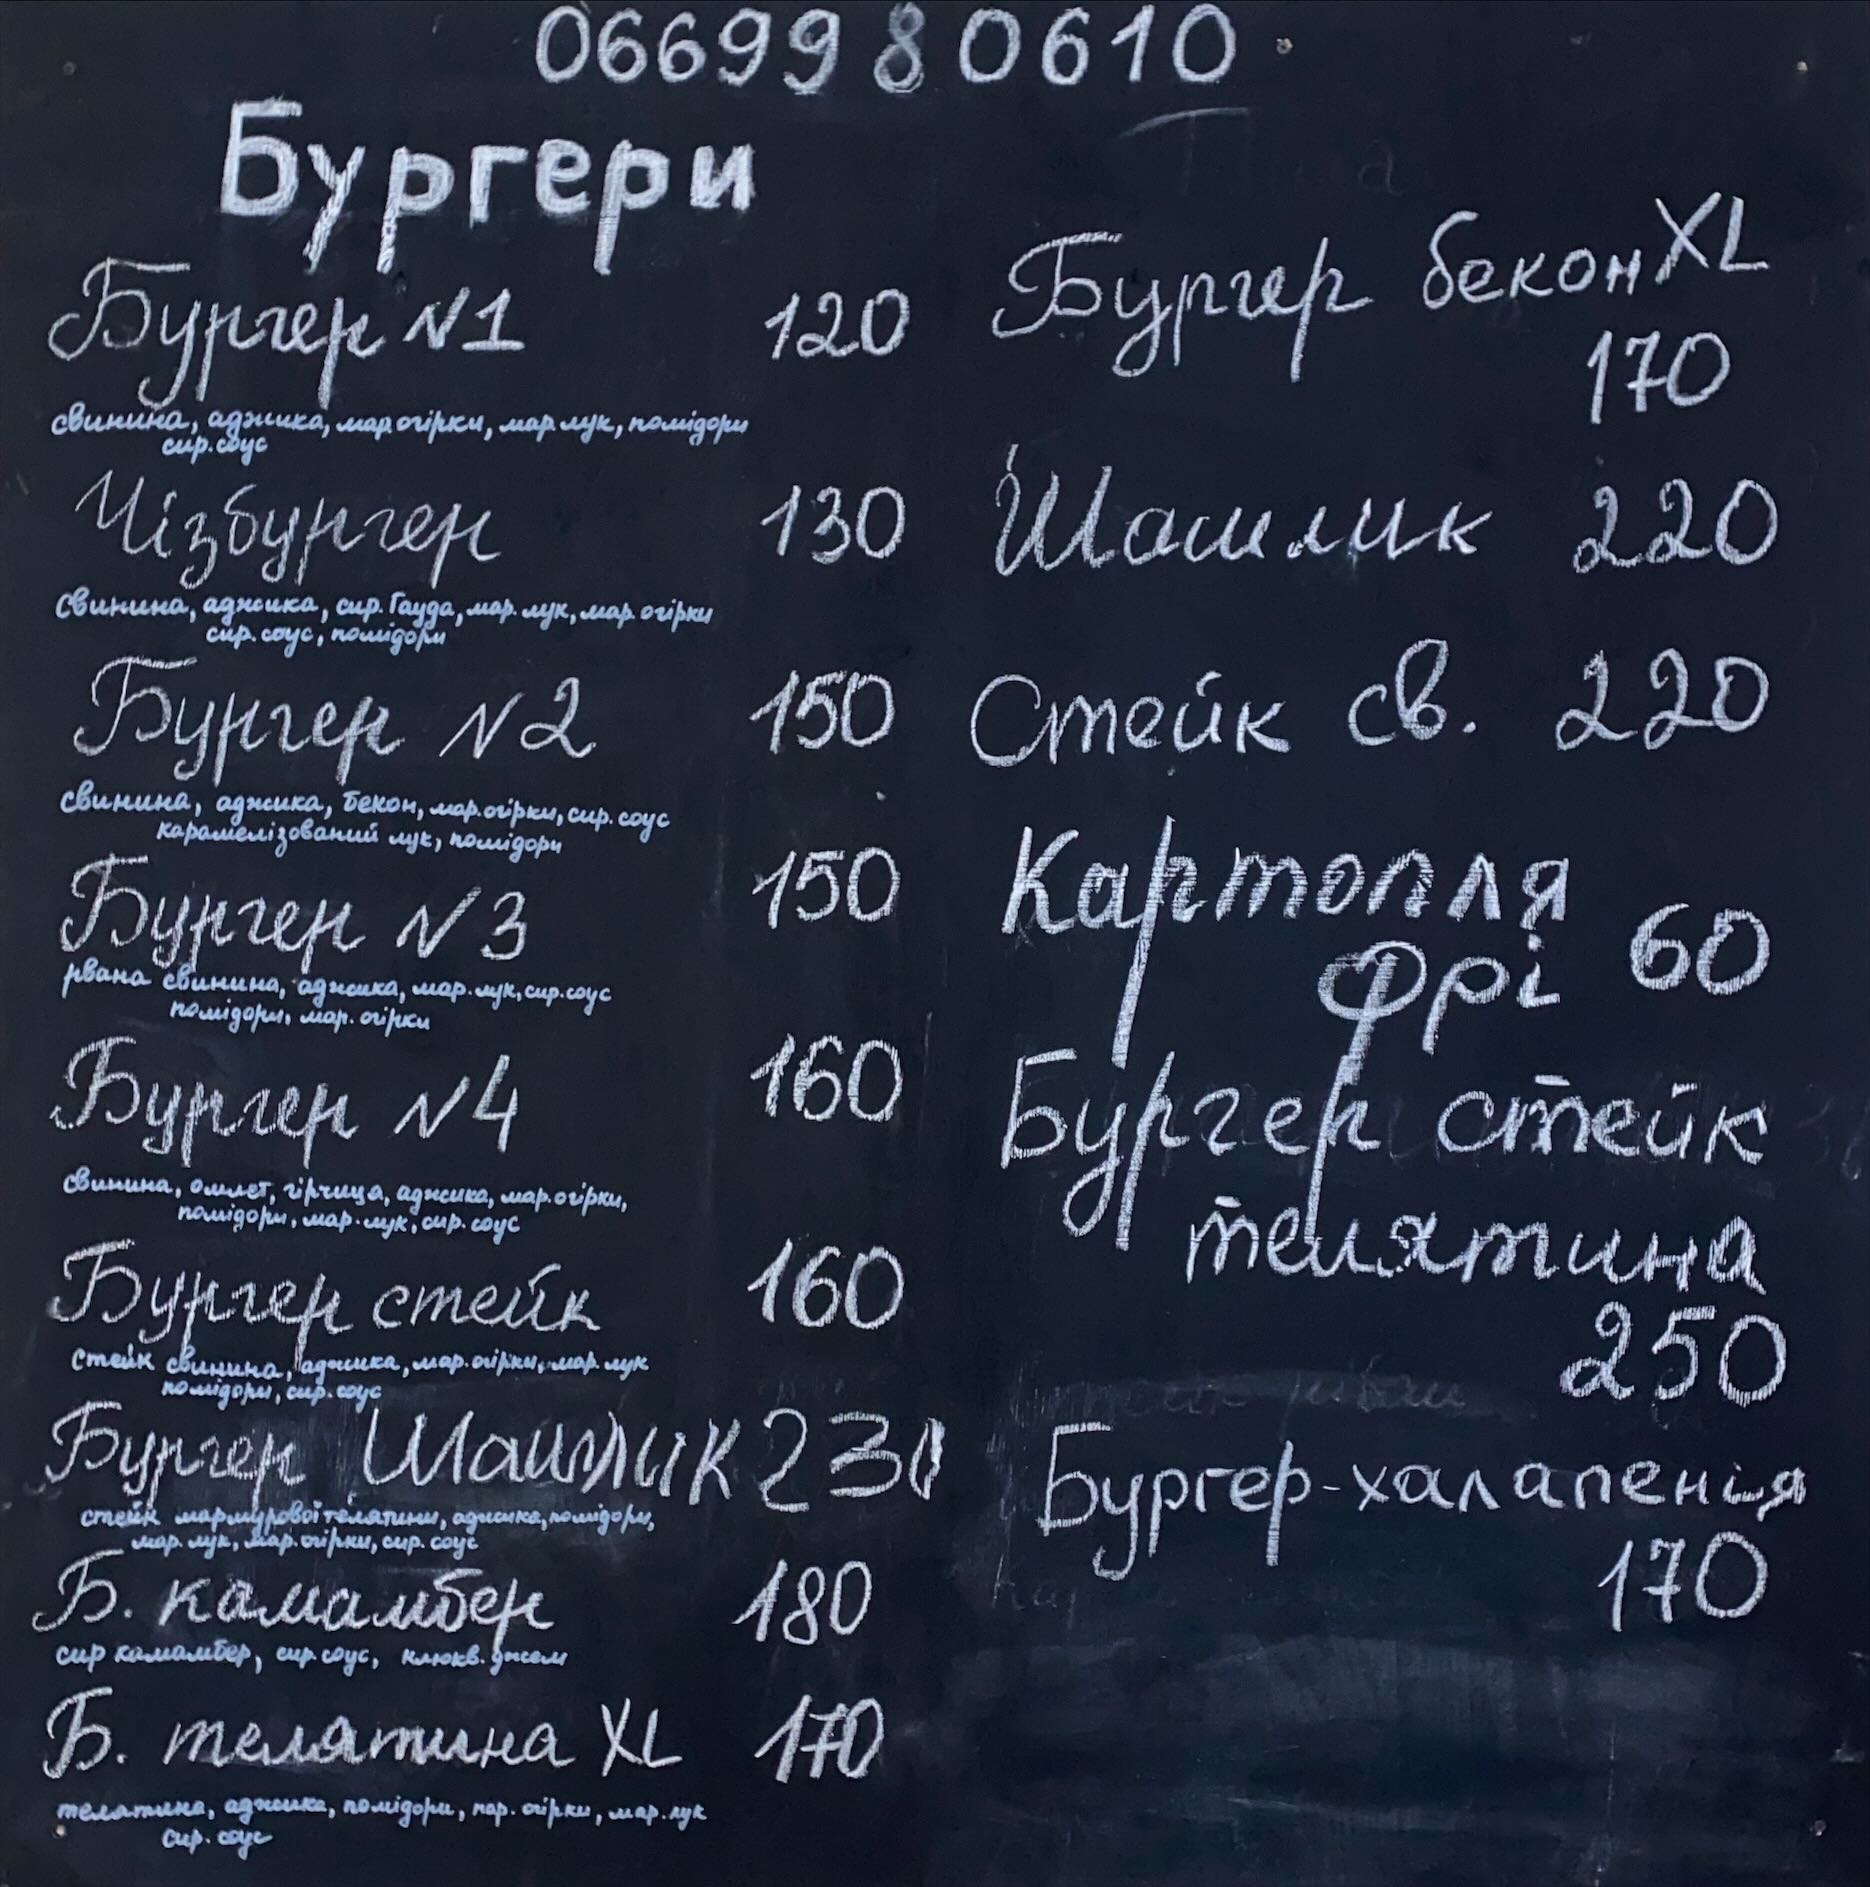 0669980610
Бургери
Бургер N1 120
свинина, аджика, мар.огірки, мар.лук, помідори
сир.соус
Чізбургер 130
свинина, аджика, сир.Гауда, мар.лук, мар.огірки
сир.соус, помідори
Бургер N2 150
свинина, аджика, бекон, мар.огірки, сир.соус
карамелізований лук, помідори
Бургер N3 150
рвана свинина, аджика, мар.лук, сир.соус
помідори, мар.огірки
Бургер N4 160
свинина, омлет, гірчица, аджика, мар.огірки,
помідори, мар.лук, сир.соус
Бургер стейк 160
стейк свинина, аджика, мар.огірки, мар.лук
помідори, сир.соус
Бургер Шашлик 230
стейк мармурової телятини, аджика, помідори,
мар.лук, мар.огірки, сир.соус
Б. камамбер 180
сир камамбер, сир.соус, клюкв.джем
Б. телятина XL 170
телятина, аджика, помідори, мар.огірки, мар.лук
сир.соус
Бургер бекон XL
170
Шашлик 220
Стейк св. 220
Картопля
фрі 60
Бургер стейк
телятина
250
Бургер-халапенія
170